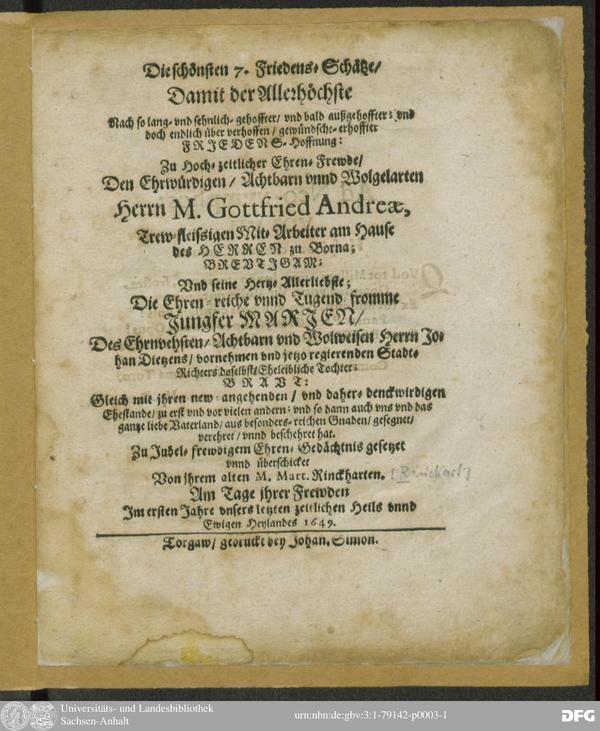 Die schönsten 7. Friedens-Schätze/
Damit der Allerhöchste
Nach so lang- vnd sehnlich- gehoffter/ vnd bald außgehoffter: vnd
doch endlich über verhoffen/ gewündscht- erhoffter
FRIEDENS-Hoffnung:
Zu Hoch-zeitlicher Ehren-Frewde/
Den Ehrwürdigen/ Achtbarn vnnd Wolgelarten
Herrn M. Gottfried Andreæ,
Trew-fleissigen Mit-Arbeiter am Hause
des HERREN zu Borna;
BREVTIGAM:
Vnd seine Hertz-Allerliebste;
Die Ehren-reiche vnnd Tugend fromme
Jungfer MARIEN/
Des Ehrnvehsten/ Achtbarn vnd Wolweisen Herrn Jo-
han Dietzens/ vornehmen vnd jetzo regierenden Stadt-
Richters daselbst/ Eheleibliche Tochter:
BRAVT:
Gleich mit jhren new-angehenden/ vnd daher-denckwirdigen
Ehestande/ zu erst vnd vor vielen andern: vnd so dann auch vns vnd das
gantze liebe Vaterland/ aus besonders-reichen Gnaden/ gesegnet/
verehret/ vnnd beschehret hat.
Zu Jubel-frewdigem Ehren-Gedächtnis gesetzet
vnnd überschicket
Von jhrem alten M. Mart. Rinckharten. [Rinckart]
Am Tage jhrer Frewden
Im ersten Jahre vnsers letzten zeitlichen Heils vnnd
Ewigen Heylandes 1649.
Torgaw/ gedruckt bey Johan. Simon.
Universitäts- und Landesbibliothek
Sachsen-Anhalt
urn:nbn:de:gbv:3:1-79142-p0003-1
DFG